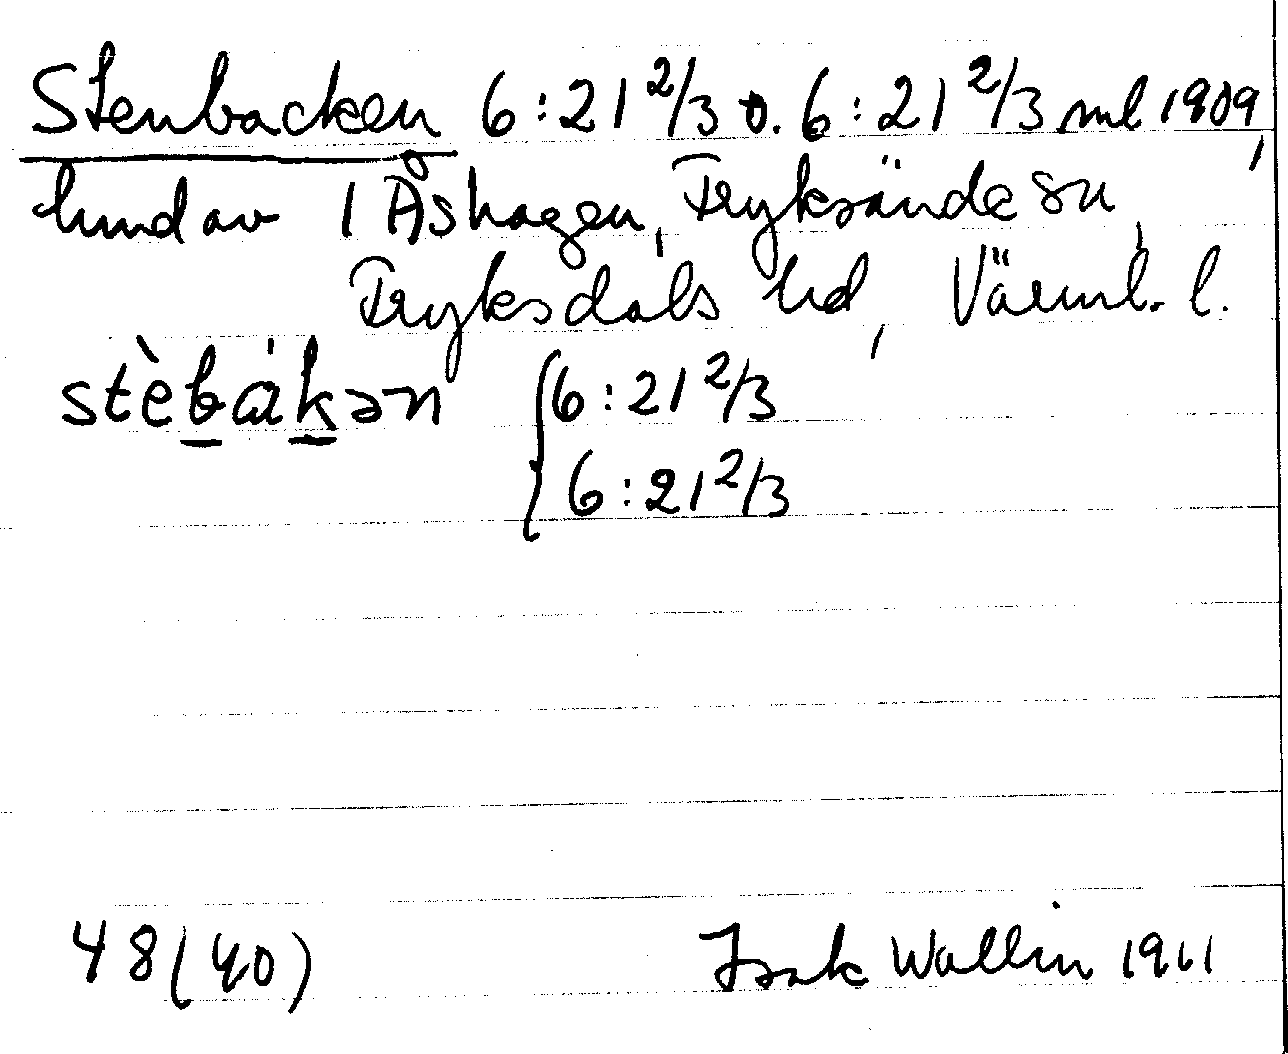 Stenbacken 6:21 2/3 o. 6:21 2/3 ml 1909,
hmd av 1 Åshagen, Fryksände sn,
Fryksdals hd, Värml. l.
stèbák̠ən { 6:21 2/3
6:21 2/3
48(40) Isak Wallin 1911